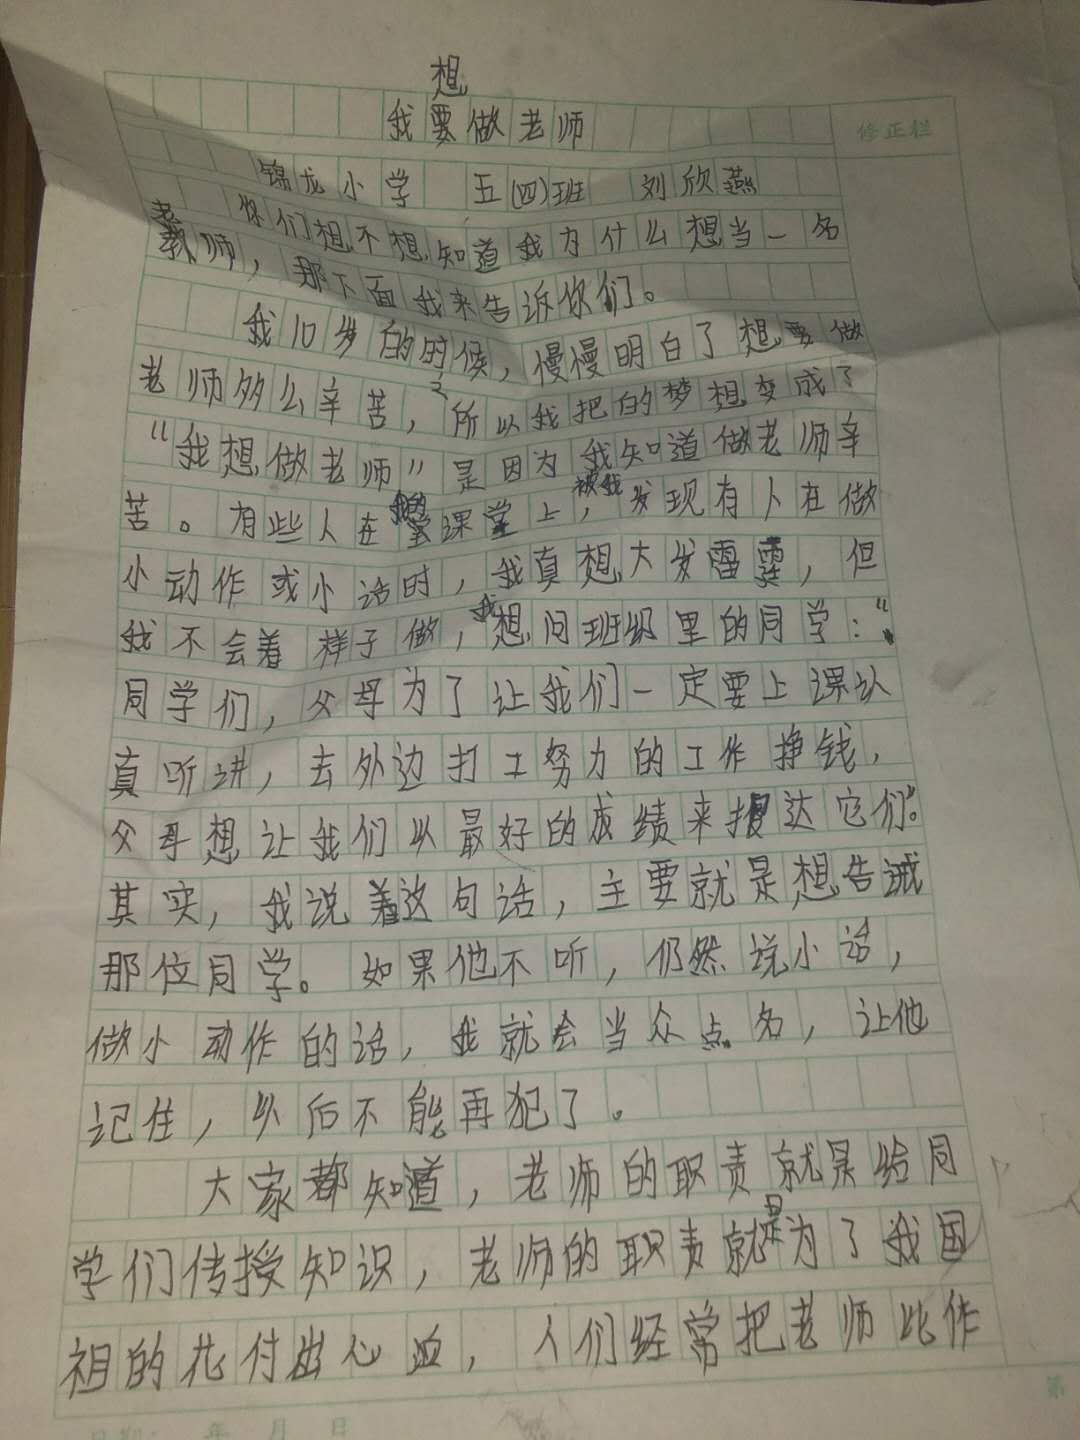 想
我要做老师
修正栏
锦龙小学 五(四)班 刘欣燕
你们想不想知道我为什么想当一名
教师，那下面我来告诉你们。
我10岁的时候，慢慢明白了想要做
老师多么辛苦，所以我把的梦想变成了
“我想做老师”是因为我知道做老师辛
苦。有些人在课堂上，被我发现有人在做
小动作或小话时，我真想大发雷霆，但
我不会着样子做，我想问班级里的同学：“
同学们，父母为了让我们一定要上课认
真听讲，去外边打工努力的工作挣钱，
父母想让我们以最好的成绩来报达它们”。
其实，我说着这句话，主要就是想告诫
那位同学。如果他不听，仍然说小话，
做小动作的话，我就会当众点名，让他
记住，以后不能再犯了。
大家都知道，老师的职责就是给同
学们传授知识，老师的职责就是为了我国
祖的花付出心血，人们经常把老师比作
第
日期： 年 月 日